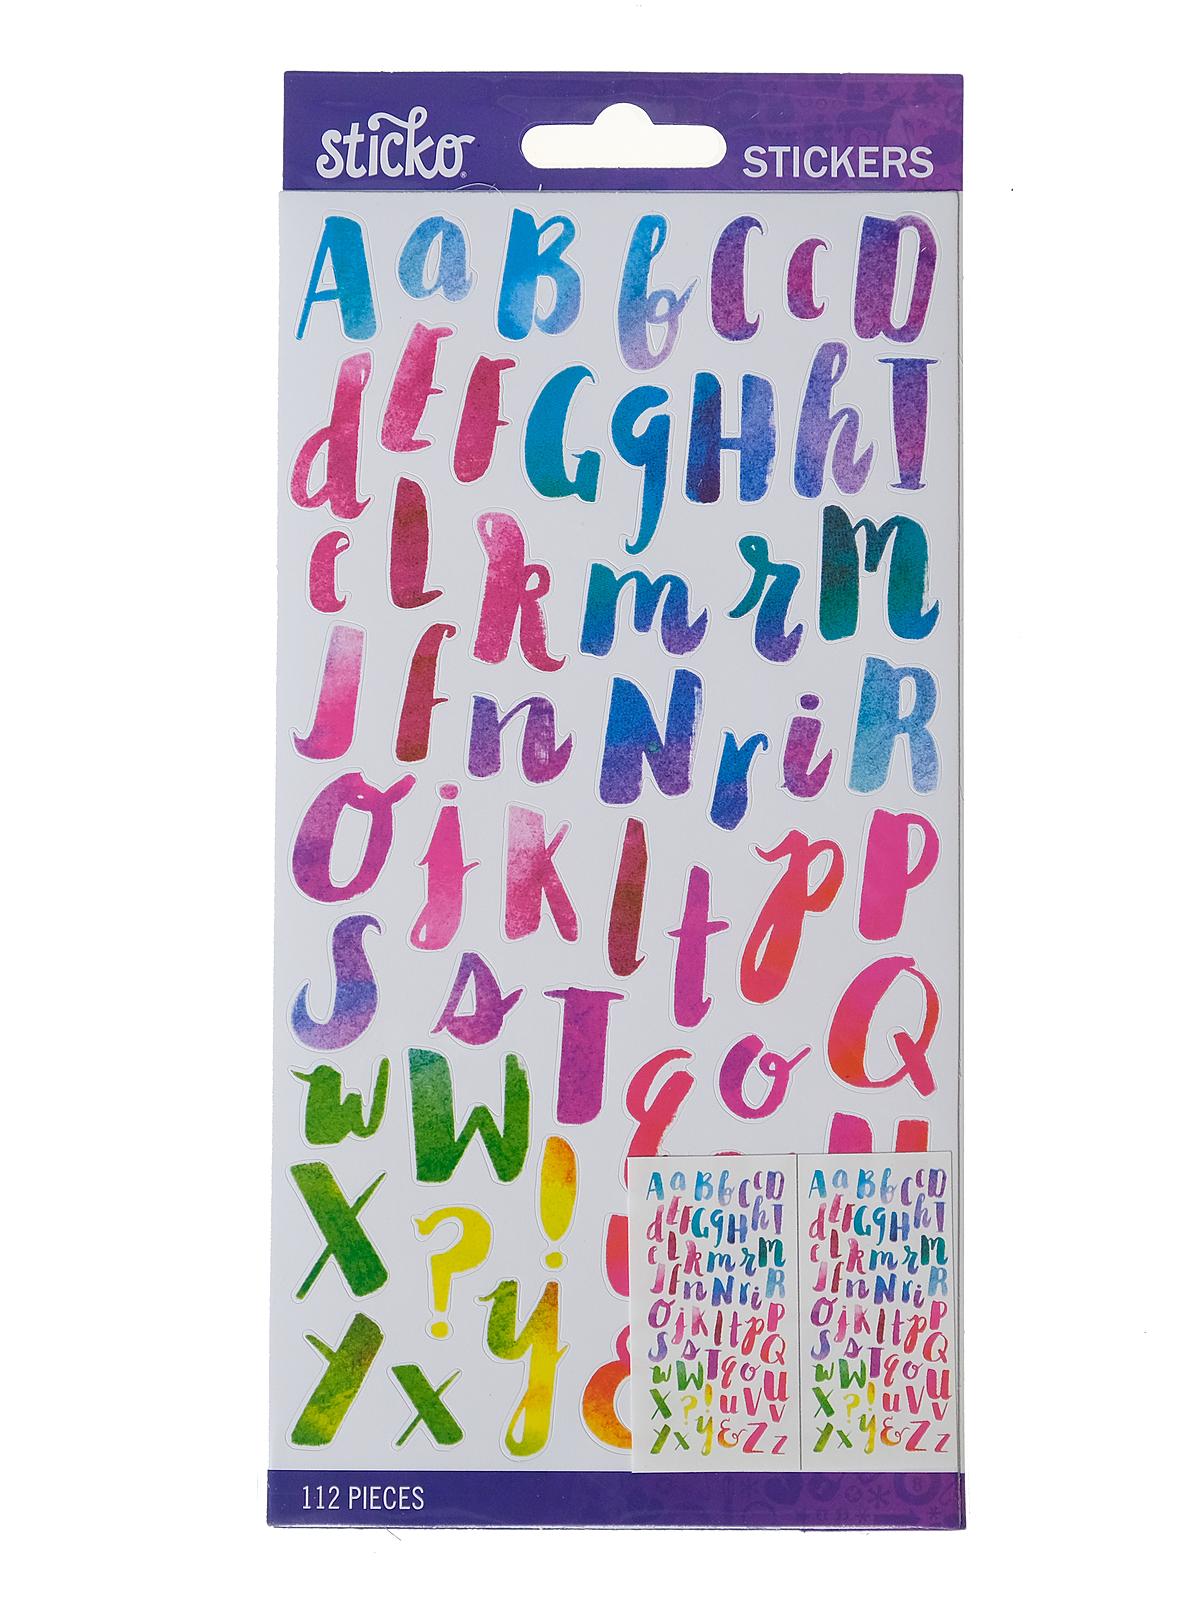 sticko
STICKERS
A a B b C c D
d E F G g H h I
e L k m r M
J f n N r i R
O j K l t p P
S s T q o Q
w W
X ? !
Y x y &
A a B b C c D
d E F G g H h I
e L k m r M
J f n N r i R
O j K l t p P
S s T q o Q
w W u V U
X ? ! v
Y x y & Z z
A a B b C c D
d E F G g H h I
e L k m r M
J f n N r i R
O j K l t p P
S s T q o Q
w W u V U
X ? ! v
Y x y & Z z
112 PIECES